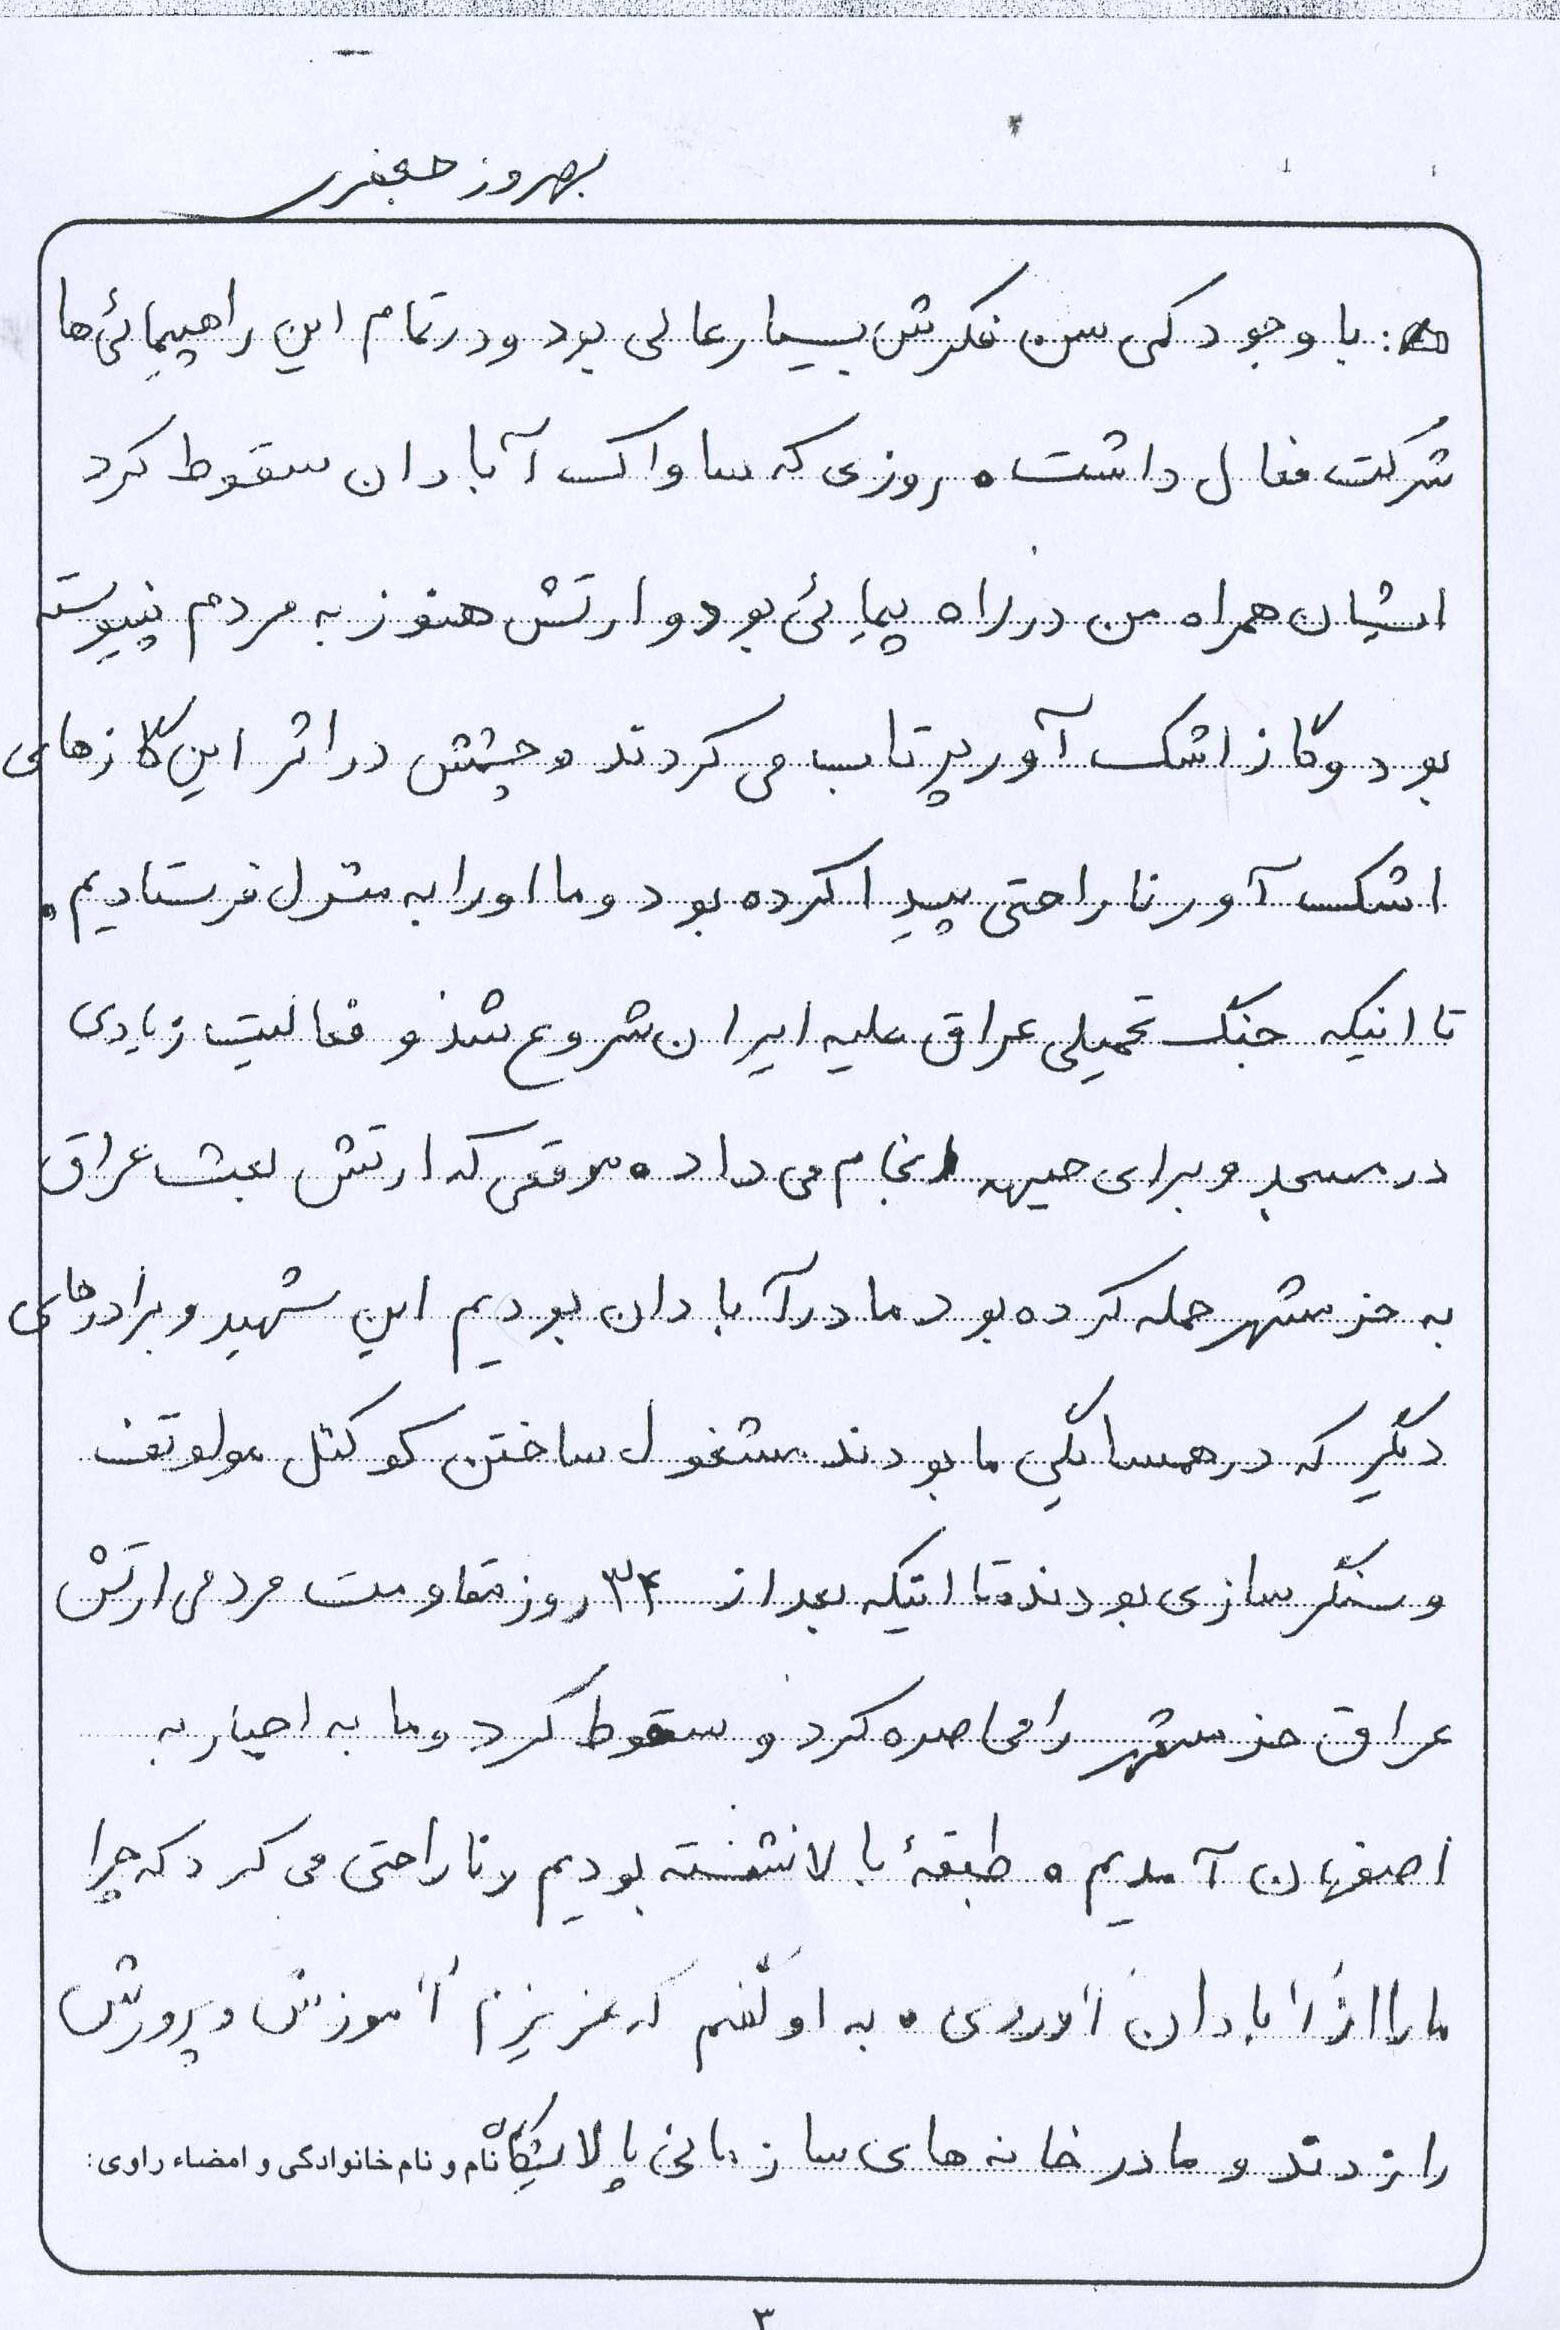 بهروز جعفری
: با وجود کمی سن فکرش بسیار عالی بود و در تمام این راهپیمائی‌ها
شرکت فعال داشت. روزی که ساواک آبادان سقوط کرد
ایشان همراه من در راه پیمائی بود و ارتش هنوز به مردم نپیوسته
بود و گاز اشک آور پرتاب می کردند و چشمش در اثر این گازهای
اشک آور ناراحتی پیدا کرده بود و ما او را به منزل فرستادیم.
تا اینکه جنگ تحمیلی عراق علیه ایران شروع شد و فعالیت زیادی
در مسجد و برای جبهه انجام می داد. موقعی که ارتش بعث عراق
به خرمشهر حمله کرده بود ما در آبادان بودیم این شهید و برادرهای
دیگر که در همسایگی ما بودند مشغول ساختن کوکتل مولوتف
و سنگر سازی بودند تا اینکه بعد از ۳۴ روز مقاومت مردمی ارتش
عراق خرمشهر را محاصره کرد و سقوط کرد و ما به اجبار به
اصفهان آمدیم. طبقهٔ بالا نشسته بودیم و ناراحتی می کرد که چرا
ما را از آبادان آوردی. به او گفتم که عزیزم آموزش و پرورش
را زدند و ما در خانه های سازمانی پالایشگاه نام و نام خانوادگی و امضاء راوی:
۳